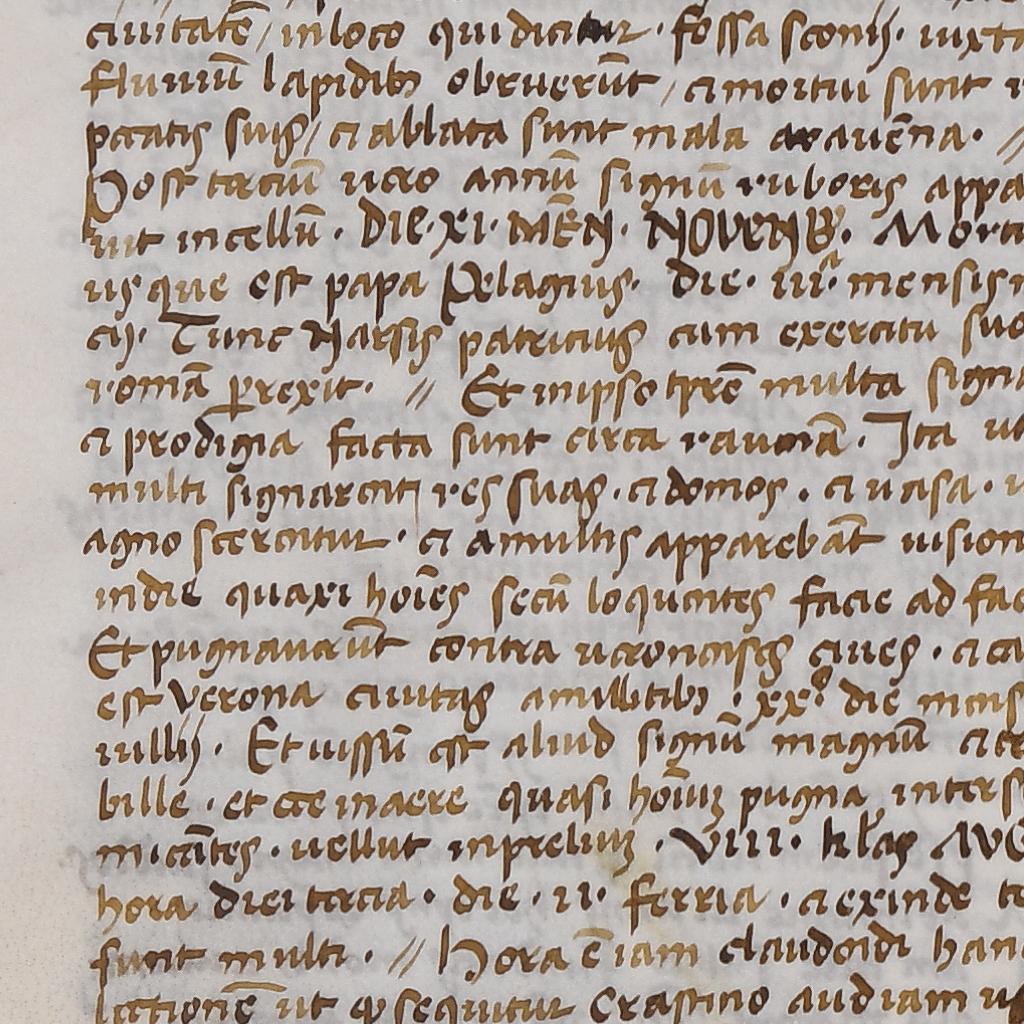 ciuitatē / in loco qui dicitur · fossa sconij · iuxta
fluuiū lapidibȝ obruerūt / et mortui sunt
pctatis suis / et ablata sunt mala arauēna · //
Post terciū uero annū signū ruboris appa
uit in cellū · DIE · XI · MĒN · NOVENB · Mortu
us que est papa Pelagius · die · iiiiᵃ mensis
cij · Tunc Narsis patricius cum exercitu suo
romā perrexit · // Et in ipso tp̄re multa signa
et prodigia facta sunt circa rauenā · Ita ut
multi signarent res suas · et domos · et uasa ·
agno scerentur · et a multis apparebāt uision
in die quaxi hoīes secū loquentes facie ad fac
Et pugnauerūt contra ueronensis ciues · et ca
est Verona ciuitas a millitibȝ · xxº die mens
iullij · Et uissū est aliud signū magnū et te
bille · et ecce in aere quasi hoīuȝ pugna inter s
micātes · uellut in preliuȝ · VIII · kl̄as AVG
hora diei tercia · die · ii · ferria · et exinde te
sunt multi · // Hora ēiam claudendi han
lectionē ut qd sequitur Crastino audiam